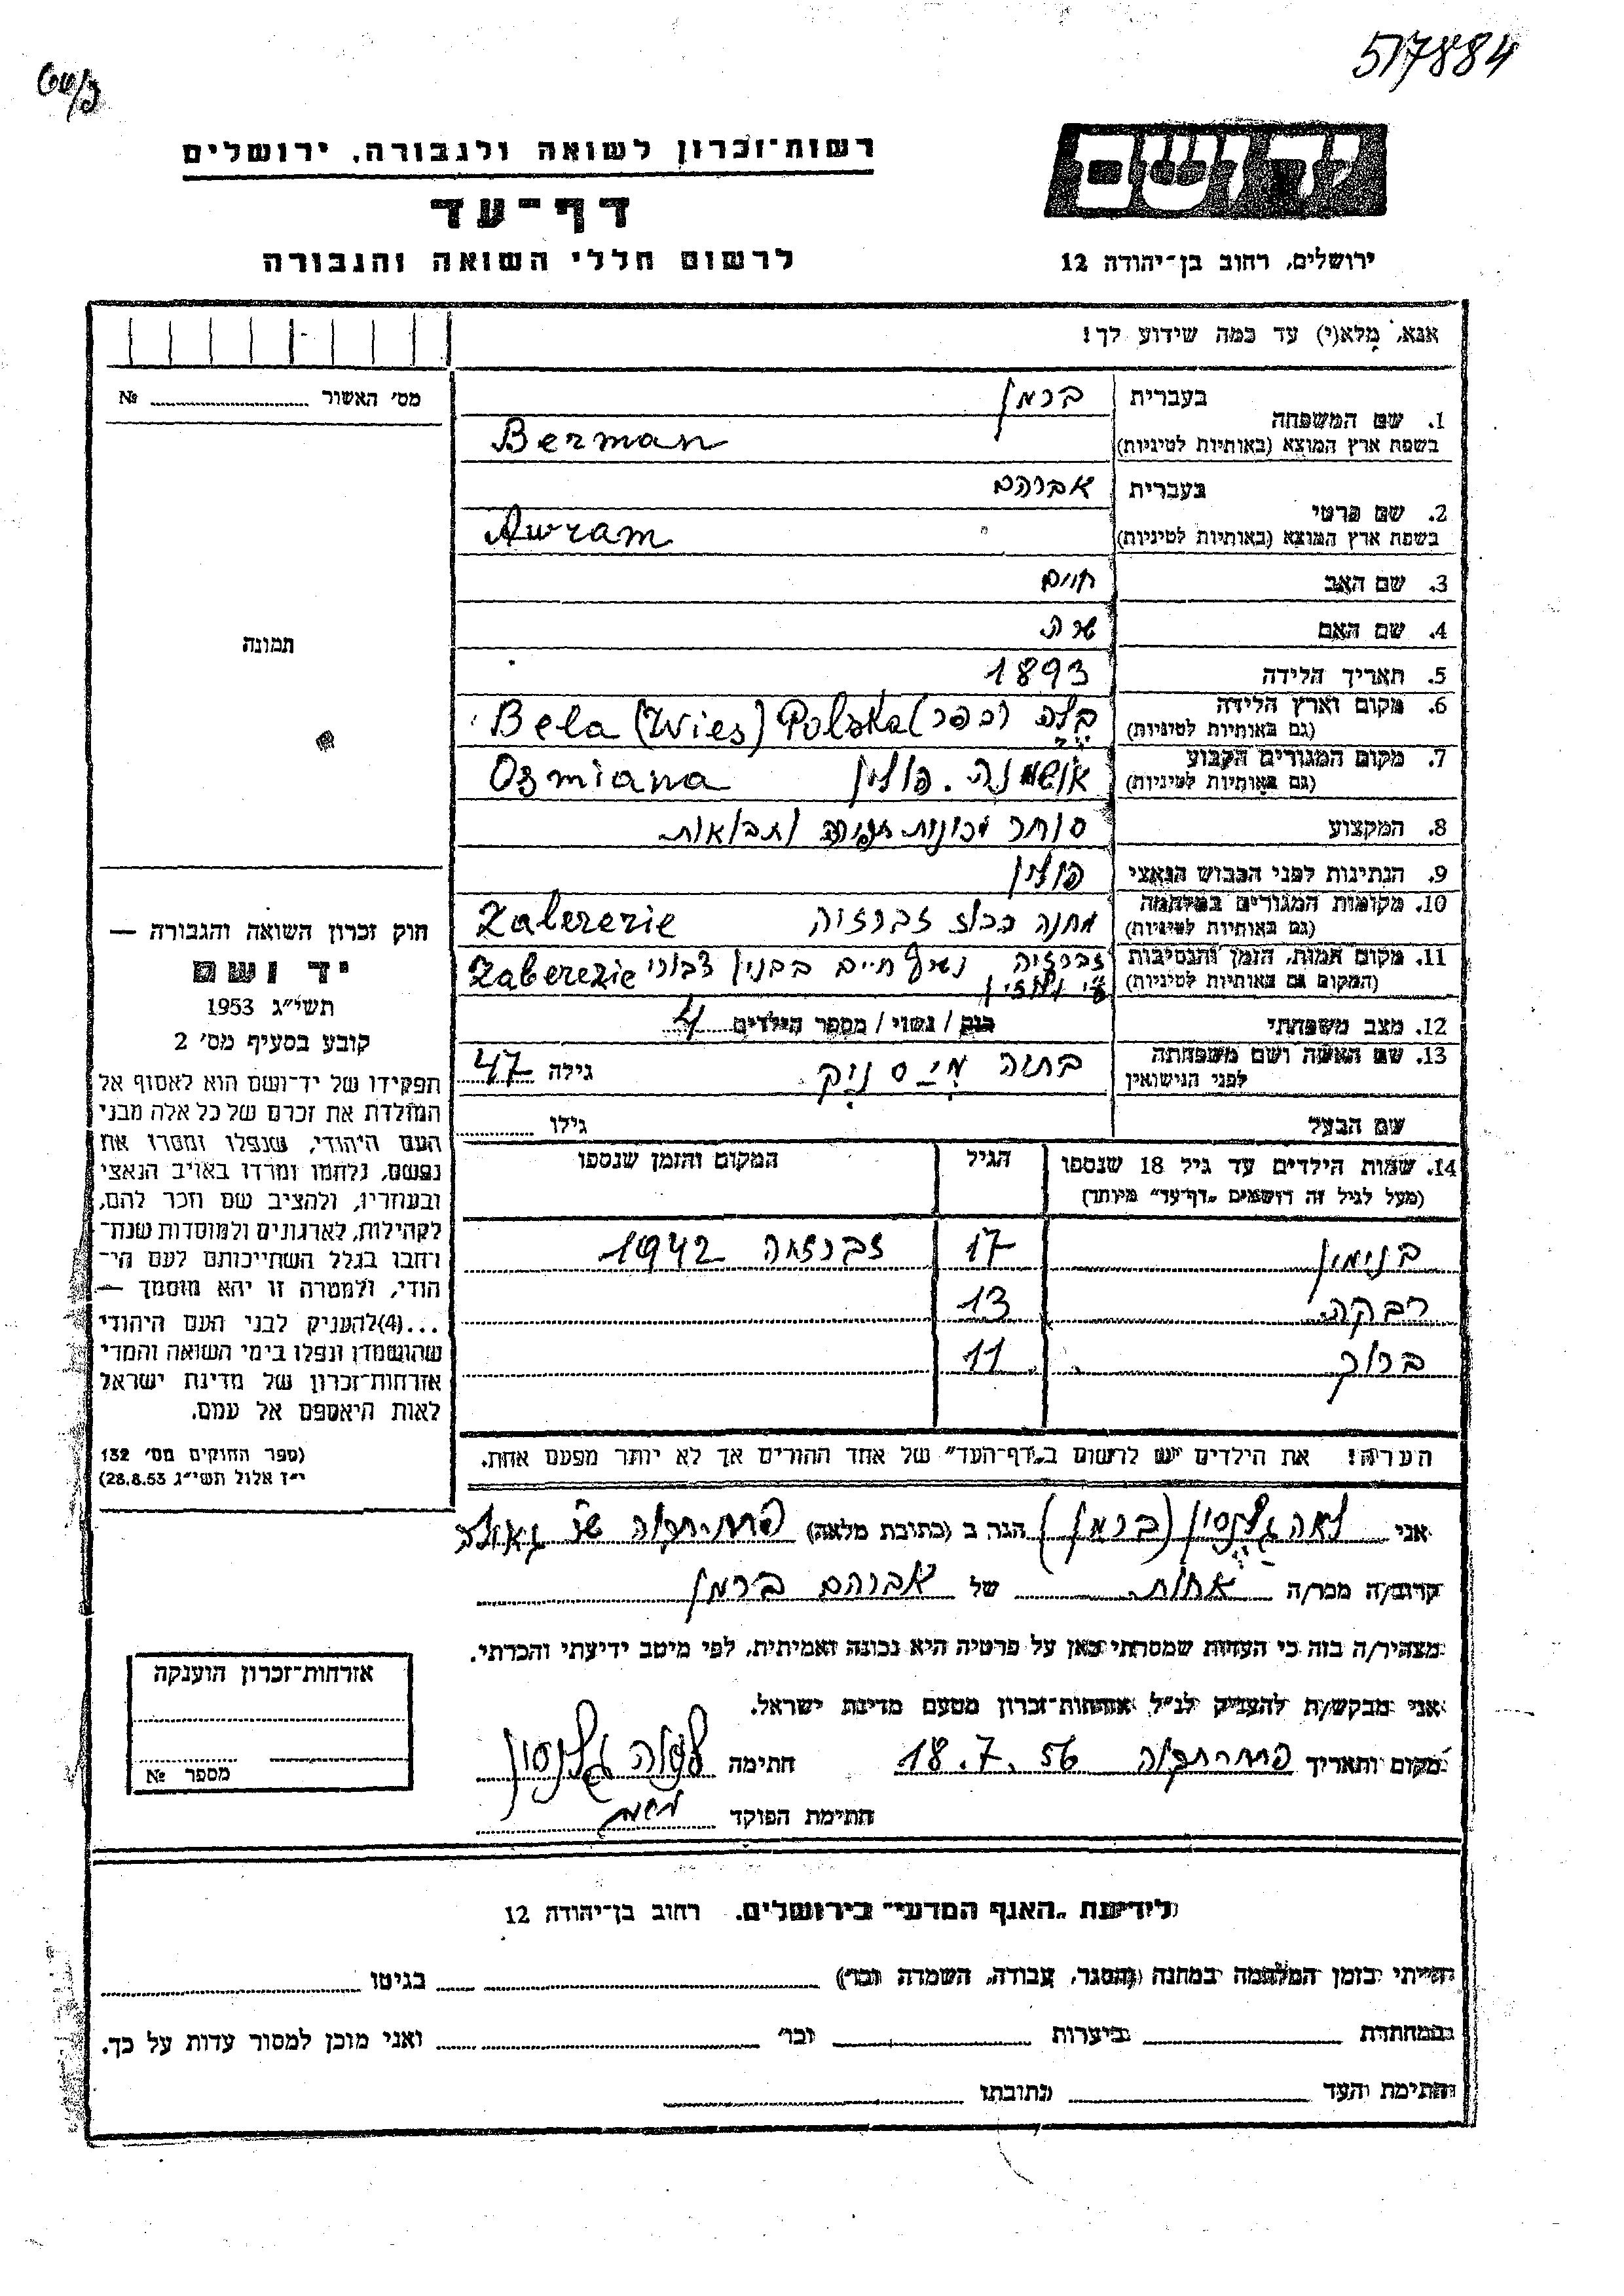 517884
רשות־זכרון לשואה ולגבורה, ירושלים
יד ושם
דף־עד
לרשום חללי השואה והגבורה
ירושלים, רחוב בן־יהודה 12
אנא, מלא(י) עד כמה שידוע לך!
מס׳ האשור № 
1. שם המשפחה בעברית ברמן
בשפת ארץ המוצא (באותיות לטיניות) Berman
2. שם פרטי בעברית אברהם
בשפת ארץ המוצא (באותיות לטיניות) Awram
3. שם האב חיים
4. שם האם שרה
5. תאריך הלידה 1893
6. מקום וארץ הלידה (גם באותיות לטיניות) בלה (כפר) Bela (Wies) Polska
7. מקום המגורים הקבוע (גם באותיות לטיניות) אושמנה. פולין Oszmiana
8. המקצוע סוחר מכונות תפירה ותבואות
9. הנתינות לפני הכבוש הנאצי פולין
10. מקומות המגורים במלחמה (גם באותיות לטיניות) מחנה זברזיה Zaberezie
11. מקום המות, הזמן והנסיבות (המקום גם באותיות לטיניות) זברזיה נשרף חיים בבנין צבורי Zaberezie
12. מצב משפחתי רווק / נשוי / מספר הילדים 4
13. שם האשה ושם משפחתה לפני הנישואין בתיה גילה 47
שם הבעל גילו
14. שמות הילדים עד גיל 18 שנספו הגיל המקום והזמן שנספו
(מעל לגיל זה רושמים „דף־עד” מיוחד)
בנימין 17 זברזיה 1942
רבקה 13
ברוך 11
הערה! את הילדים יש לרשום ב„דף־העד” של אחד ההורים אך לא יותר מפעם אחת.
תמונה
חוק זכרון השואה והגבורה —
יד ושם
תשי״ג 1953
קובע בסעיף מס׳ 2
תפקידו של יד־ושם הוא לאסוף אל
המולדת את זכרם של כל אלה מבני
העם היהודי, שנפלו ומסרו את
נפשם, נלחמו ומרדו באויב הנאצי
ובעוזריו, ולהציב שם וזכר להם,
לקהילות, לארגונים ולמוסדות שנח־
רחבו בגלל השתייכותם לעם הי־
הודי, ולמטרה זו יהא מוסמך —
...(4)להעניק לבני העם היהודי
שהושמדו ונפלו בימי השואה והמרי
אזרחות־זכרון של מדינת ישראל
לאות היאספם אל עמם.
(ספר החוקים מס׳ 132
י״ז אלול תשי״ג 28.8.53)
אני לאה (ברמן) הגר ב (כתובת מלאה) פתח תקוה
קרוב/ה מכר/ה אחות של אברהם ברמן
מצהיר/ה בזה כי העדות שמסרתי כאן על פרטיה היא נכונה ואמיתית, לפי מיטב ידיעתי והכרתי.
אני מבקש/ת להעניק לנ״ל אזרחות־זכרון מטעם מדינת ישראל.
מקום ותאריך פתח תקוה 18.7.56 חתימה
חתימת הפוקד
אזרחות־זכרון הוענקה
מספר №
לידיעת „האגף המדעי” בירושלים. רחוב בן־יהודה 12
הייתי בזמן המלחמה במחנה (הסגר, עבודה, השמדה וכו׳) בגיטו
במחתרת ביערות וכו׳ ואני מוכן למסור עדות על כך.
חתימת העד כתובתו